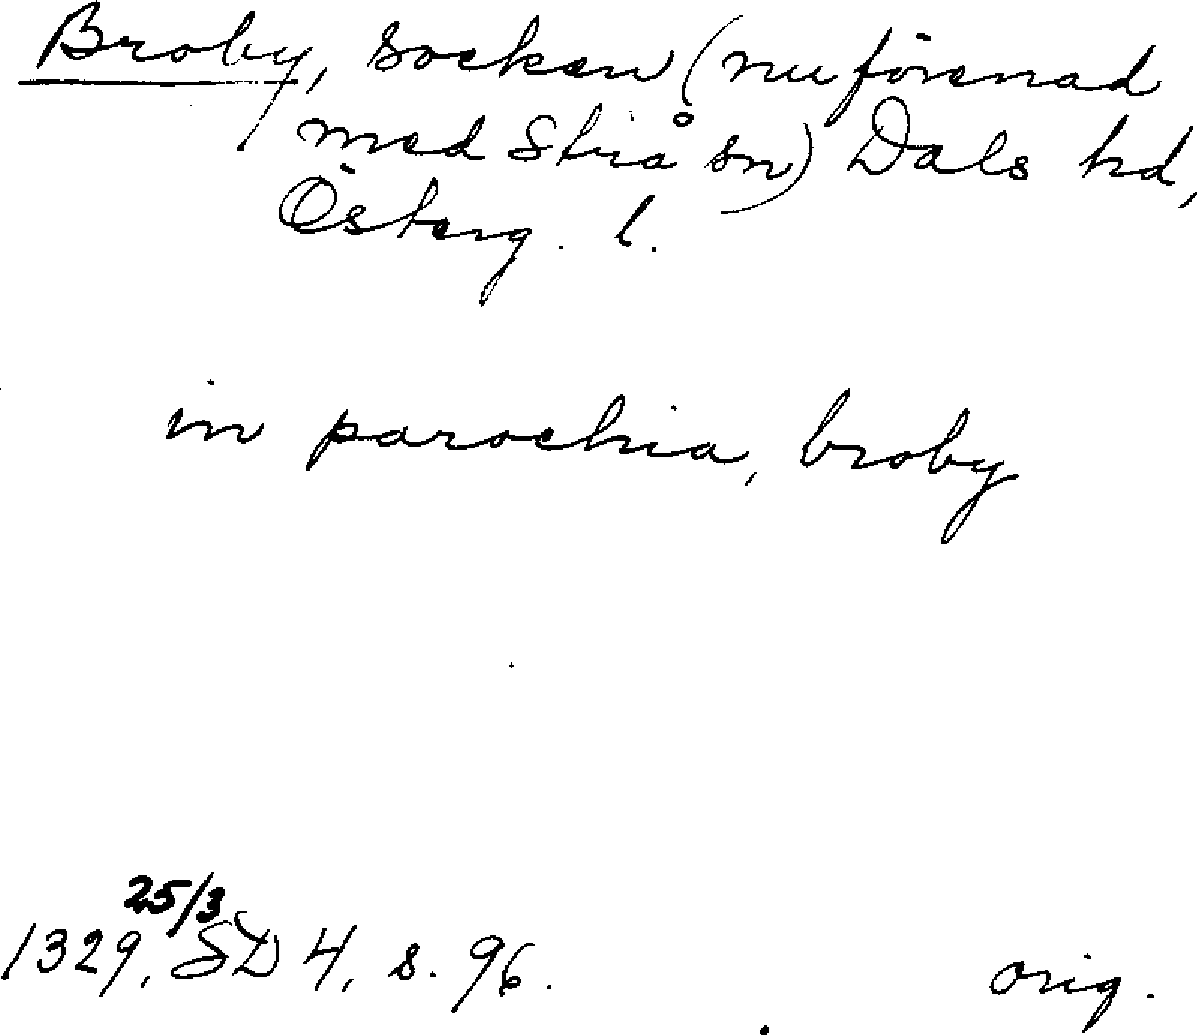 Broby, socken (nu förenad
med Strå sn) Dals hd,
Österg. l.
in parochia, broby
25/3
1329, SD 4, s. 96.
orig.